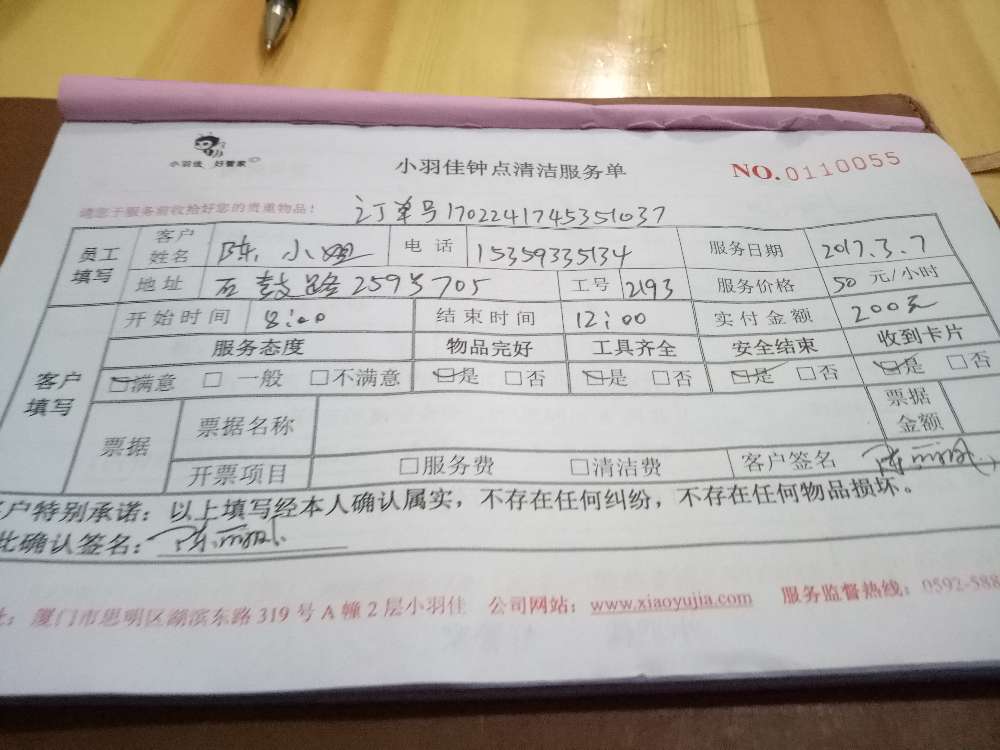 小羽佳 好管家
小羽佳钟点清洁服务单
NO.0110055
请您于服务前收拾好您的贵重物品!
订单号1702241745351037
员工填写 客户姓名 陈小姐 电话 15359335134 服务日期 2017.3.7
地址 石鼓路259号705 工号 2193 服务价格 50 元/小时
客户填写 开始时间 8:00 结束时间 12:00 实付金额 200元
服务态度 物品完好 工具齐全 安全结束 收到卡片
满意 一般 不满意 是 否 是 否 是 否 是 否
票据 票据名称 票据金额
开票项目 服务费 清洁费 客户签名
户特别承诺:以上填写经本人确认属实,不存在任何纠纷,不存在任何物品损坏。
此确认签名:
址:厦门市思明区湖滨东路319号A幢2层小羽佳 公司网站:www.xiaoyujia.com 服务监督热线:0592-588